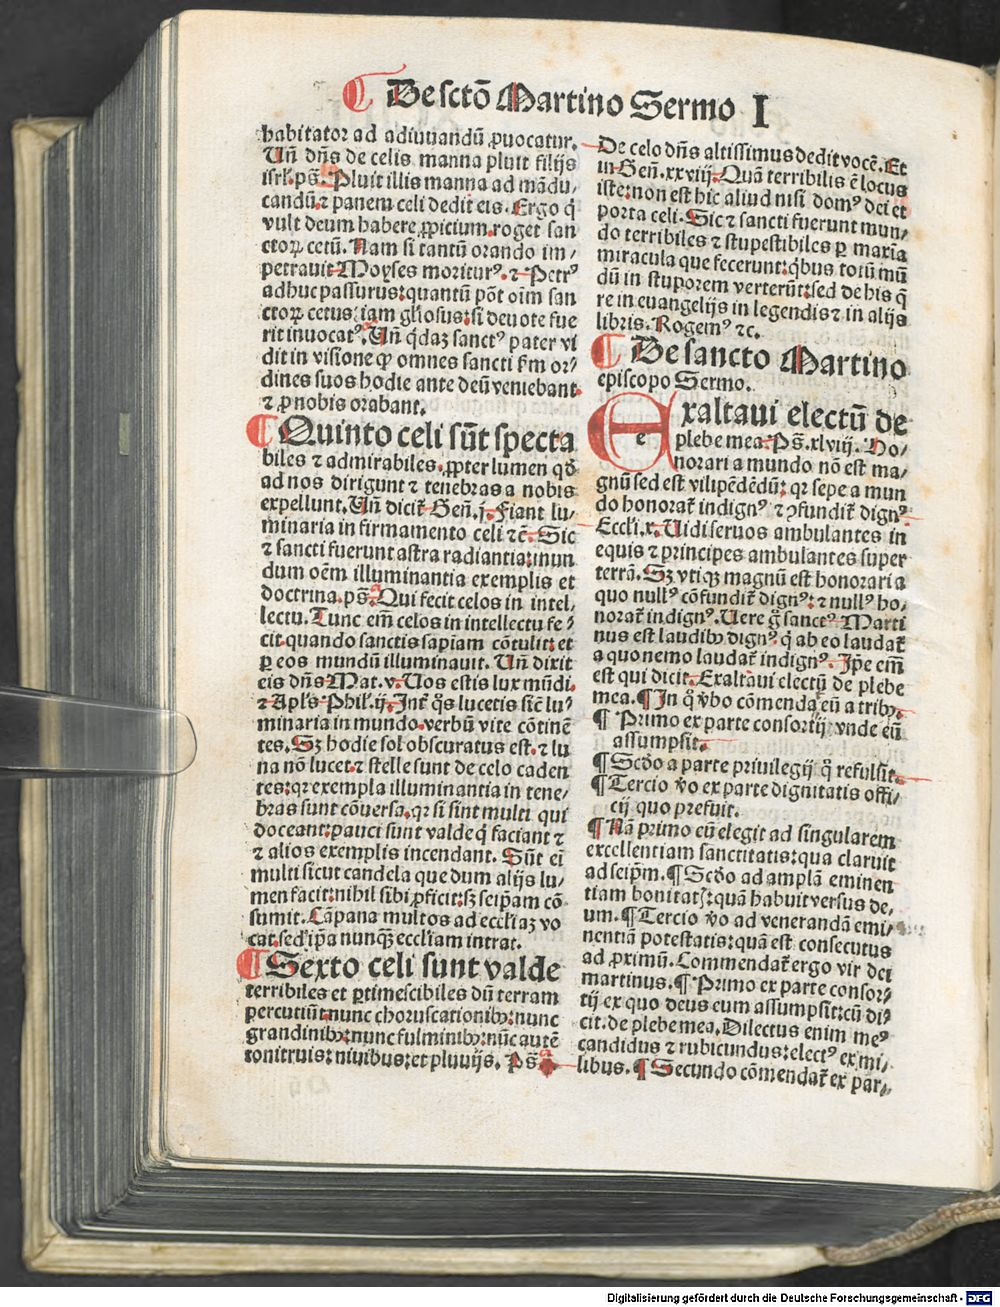 De sctō Martino Sermo I
habitator ad adiuuandū ꝓuocatur.
Uñ dñs de celis manna pluit filijs
isrl̓. ps̄. Pluit illis manna ad mādu/
candū: ⁊ panem celi dedit eis. Ergo q̇
vult deum habere ꝓpicium. roget san
ctoꝝ cetū. Nam si tantū orando im/
petrauit Moyses moriturꝰ. ⁊ Petrꝰ
adhuc passurus: quantū pōt oīm san
ctoꝝ cetus: iam gl̓iosus: si deuote fue
rit inuocatꝰ. Uñ q̇daꝫ sanctꝰ pater vi
dit in visione ꝙ omnes sancti ẜm or/
dines suos hodie ante deū veniebant
⁊ ꝓ nobis orabant.
Quinto celi sūt specta
biles ⁊ admirabiles. ꝓpter lumen qd̄
ad nos dirigunt ⁊ tenebras a nobis
expellunt. Uñ dicit̄ Geñ. j. Fiant lu/
minaria in firmamento celi ⁊c̄. Sic
⁊ sancti fuerunt astra radiantia: mun
dum oēm illuminantia exemplis et
doctrina. ps̄. Qui fecit celos in intel/
lectu. Tunc em̄ celos in intellectu fe/
cit. quando sanctis sapīam cōtulit: et
ꝑ eos mundū illuminauit. Uñ dixit
eis dñs Mat. v. Uos estis lux mūdi.
⁊ Apl̓s Phil̓. ij. Int̄ q̄s lucetis sic̄ lu/
minaria in mundo. verbū vite cōtinē
tes. Sꝫ hodie sol obscuratus est. ⁊ lu
na nō lucet. ⁊ stelle sunt de celo caden
tes: qꝛ exempla illuminantia in tene/
bras sunt cōuersa. qꝛ si sint multi qui
doceant: pauci sunt valde q̇ faciant ⁊
⁊ alios exemplis incendant. Sūt em̄
multi sicut candela que dum alijs lu/
men facit: nihil sibi ꝓficit: sꝫ seip̄am cō
sumit. Cāpana multos ad eccl̓iaꝫ vo
cat. sed ip̄a nunqꝫ eccl̓iam intrat.
Sexto celi sunt valde
terribiles et ꝑtimescibiles dū terram
ꝑcutiūt. nunc choruscationibꝰ: nunc
grandinibꝰ: nunc fulminibꝰ: nūc autē
tonitruis: niuibus: et pluuijs. Ps̄.
De celo dñs altissimus dedit vocē. Et
in Geñ. xxviij. Quā terribilis ē locus
iste: non est hic aliud nisi domꝰ dei et
porta celi. Sic ⁊ sancti fuerunt mun/
do terribiles ⁊ stupestibiles ꝑ maxīa
miracula que fecerunt: q̇bus totū mū
dū in stuporem verterūt: sed de his q̄
re in euangelijs in legendis ⁊ in alijs
libris. Rogemꝰ ⁊c.
De sancto Martino
episcopo Sermo.
Exaltaui electū de
plebe mea. Ps̄. xlviij. Ho/
norari a mundo nō est ma/
gnū sed est vilipēdēdū: qꝛ sepe a mun
do honorat̄ indignꝰ ⁊ ꝯfundit̄ dignꝰ
Eccl̓i. x. Uidi seruos ambulantes in
equis ⁊ principes ambulantes super
terrā. Sꝫ vtiqꝫ magnū est honorari a
quo nullꝰ cōfundit̄ dignꝰ: ⁊ nullꝰ ho/
norat̄ indignꝰ. Uere g̊ sanctꝰ Marti
nus est laudibꝰ dignꝰ. q̇ ab eo laudat̄
a quo nemo laudat̄ indignꝰ. Ip̄e em̄
est qui dicit. Exaltaui electū de plebe
mea. ¶ In q̇ ꝟbo cōmendat̄ eū a tribꝰ.
¶ Primo ex parte consortij: vnde eū
assumpsit.
¶ Scd̄o a parte priuilegij q̇ refulsit.
¶ Tercio ꝟo ex parte dignitatis offi/
cij quo prefuit.
¶ Nā primo eū elegit ad singularem
excellentiam sanctitatis: qua claruit
ad seip̄m. ¶ Scd̄o ad amplā eminen
tiam bonitatꝭ: quā habuit versus de/
um. ¶ Tercio ꝟo ad venerandā emi/
nentiā potestatis: quā est consecutus
ad ꝓximū. Commendat̄ ergo vir dei
martinus. ¶ Primo ex parte consor/
tij ex quo deus eum assumpsit: cū di/
cit. de plebe mea. Dilectus enim meꝰ
candidus ⁊ rubicundus: electꝰ ex mi/
libus. ¶ Secundo cōmendat̄ ex par/
Digitalisierung gefördert durch die Deutsche Forschungsgemeinschaft - DFG